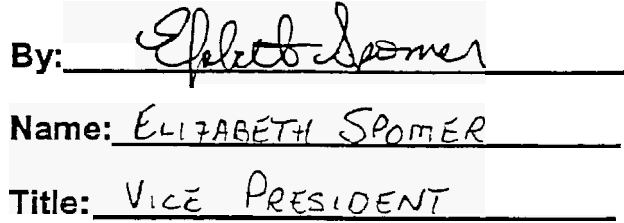 By: Elizabeth Spomer
Name: ELIZABETH SPOMER
Title: VICE PRESIDENT